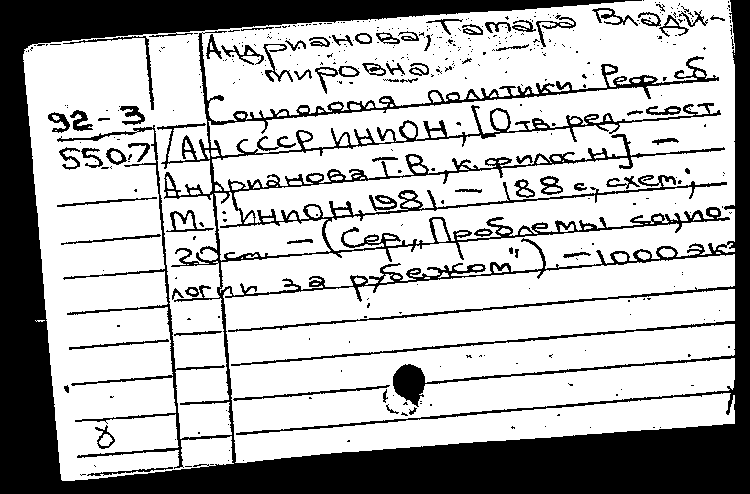 Андрианова, Татара Влади-
мировна
Социология политики: Реф. сб.
92-3
5507
/АН СССР, ИНИОН; [Отв. ред.-сост.
Андрианова Т.В., к. филос. н.] —
М.: ИНИОН, 1981. — 188 с., схем.;
20 см. — (Сер. „Проблемы социо-
логии за рубежом"). — 1000 экз
8